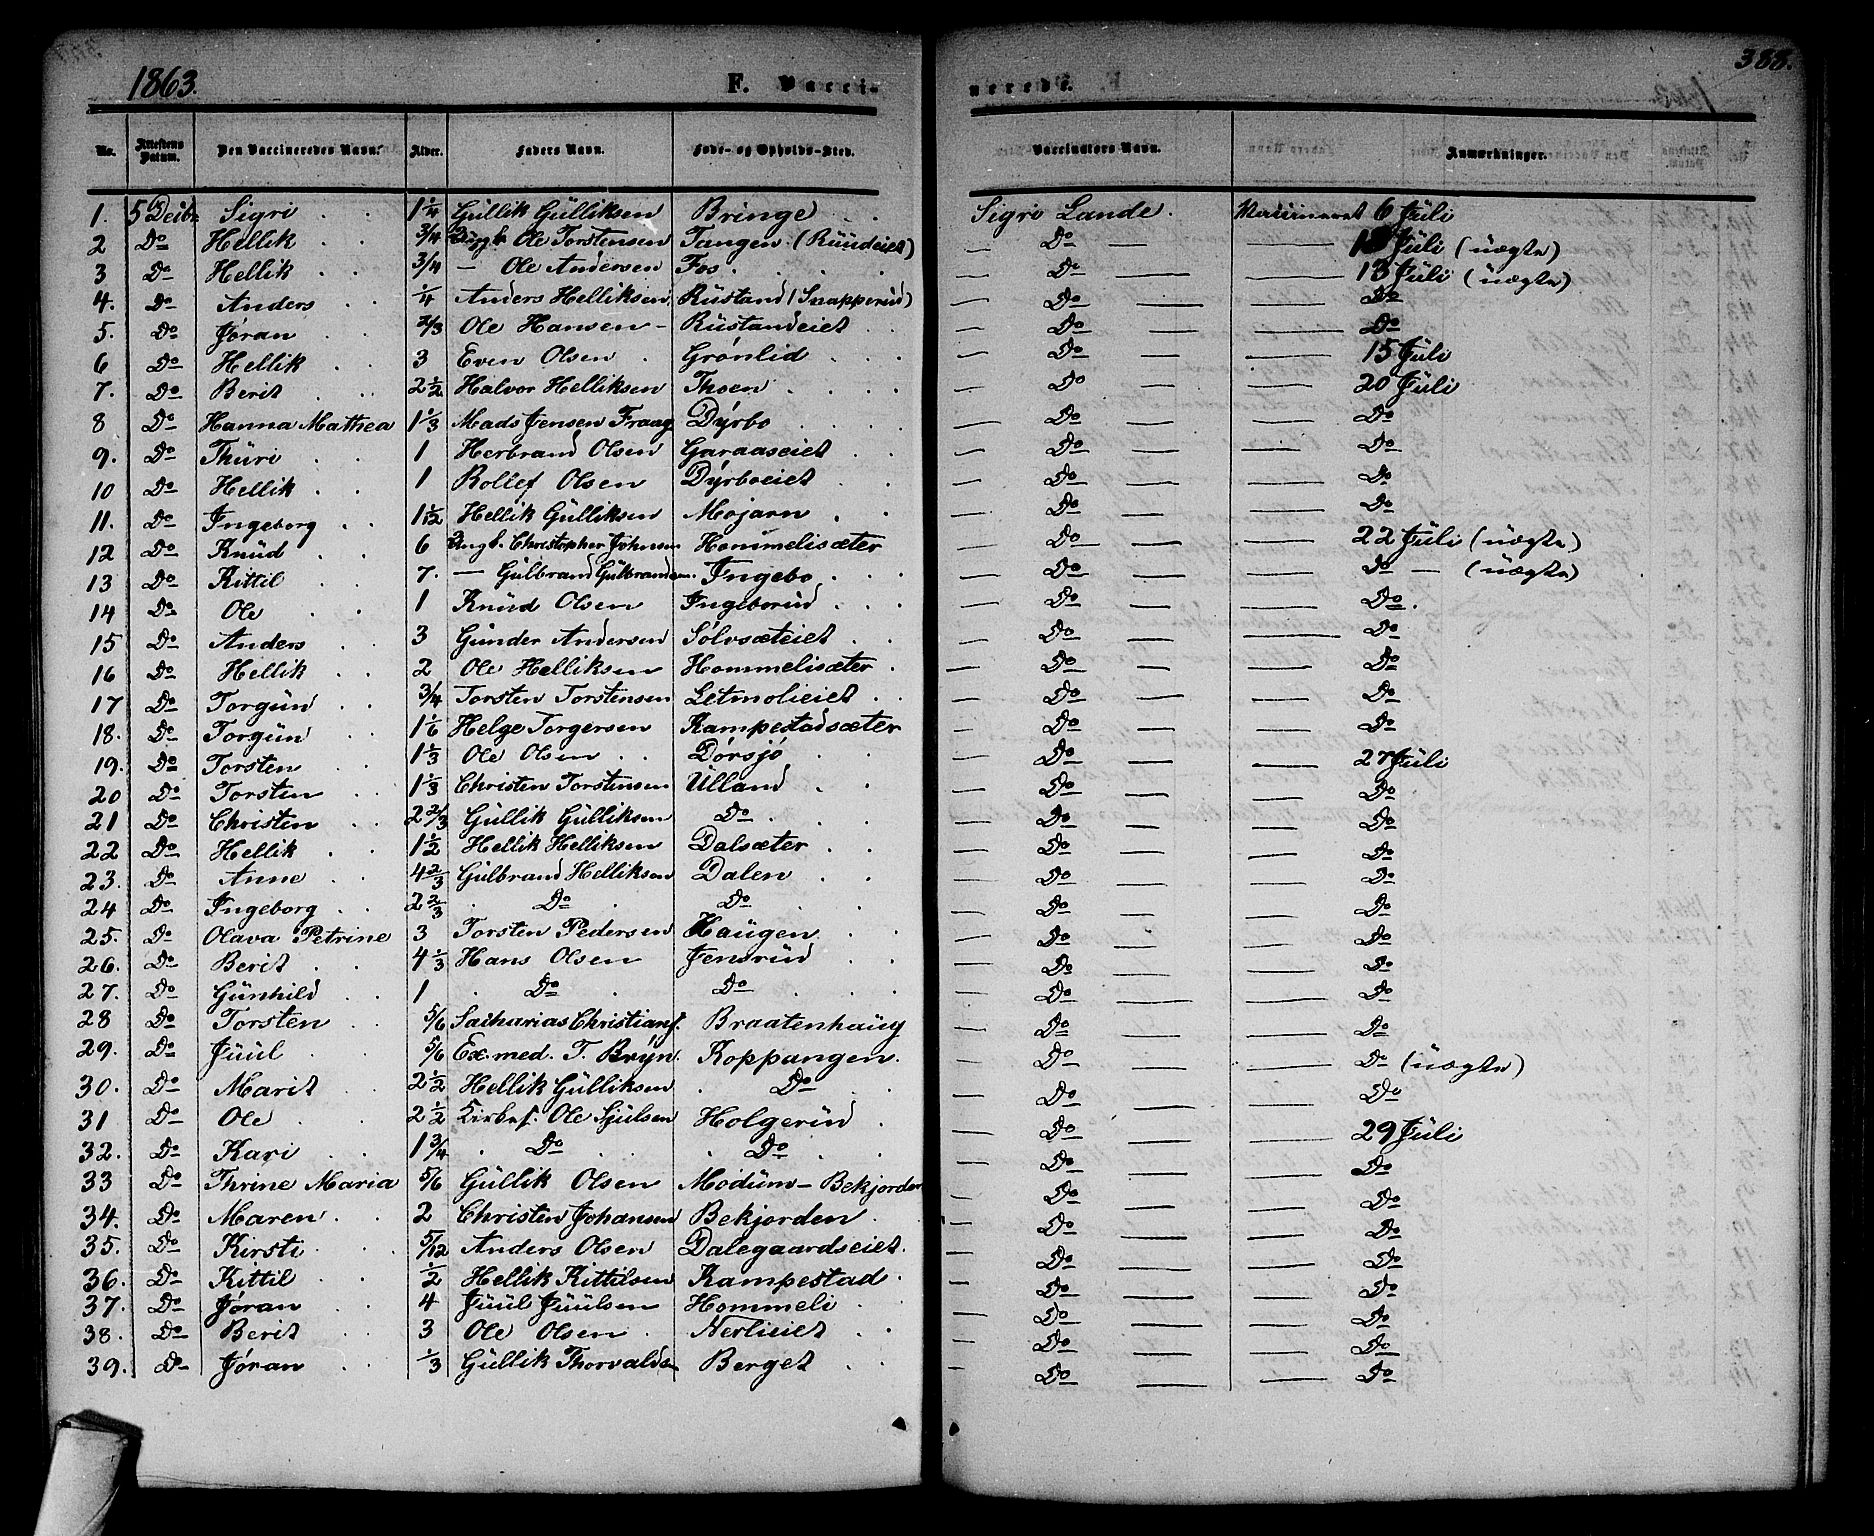 1863. F. Vaccinerede. 388.
No. Attestens Datum. Den Vaccineredes Navn. Alder. Faders Navn. Føde- og Opholds-Sted. Vaccinators Navn. Anmærkninger.
1. 5 Decbr Sigri 1 1/4 Güllik Gülliksen Bringe Sigri Lande. Vaccineret 6 Jüli
2 Do Hellik 3/4 Ungk. Ole Torstensen Tangen (Rüüdeiet) — Do — — Jüli (üægte)
3 Do Hellik 3/4 — Ole Andersen Fos — Do — — 13 Jüli (üægte)
4. Do Anders 1/4 Anders Helliksen Rüstand (Snapperüd) — Do — — Do
5. Do Jøran 2/3 Ole Hansen — Rüstandeiet — Do — — Do
6 Do Hellik 3 Even Olsen Grønlid — Do — — 15 Jüli
7. Do Berit 2 1/2 Halvor Helliksen Thoen — Do — — 20 Jüli
8 Do Hanna Mathea 1 1/3 Mads Jensen Fraag Dÿrbo — Do — — Do
9. Do Thüri 1 Herbrand Olsen Garaaseiet — Do — — Do
10 Do Hellik 1 Rollef Olsen Dÿrboeiet — Do — — Do
11. Do Ingeborg 1 1/12 Hellik Gülliksen Mojarn — Do — — Do
12 Do Knüd 6 Ungk. Christopher Johnsen Hommelisæter — Do — — 22 Jüli (üægte)
13 Do Kittil 7. — Gülbrand Gülbrandsen. Ingebo — Do — — Do — (üægte)
14 Do Ole 1 Knüd Olsen Ingeborüd — Do — — Do.
15 Do Anders 3 Günder Andersen Sølvsæteiet — Do — — Do
16 Do Hellik 2 Ole Helliksen Hommelisæter — Do — — Do
17 Do Torgün 3/4 Torsten Torstensen Letmolieiet — Do — — Do
18. Do Torgün 1 1/6 Helge Torgersen Kampestadsæter — Do — — Do
19. Do Torsten 1 1/3 Ole Olsen Dørsjø — Do — — 27 Jüli
20 Do Torsten 1 1/3 Christen Torstensen Ülland — Do — — Do
21 Do Christen 2 2/3 Güllik Gülliksen Do — Do — — Do
22 Do Hellik 1 1/2 Hellik Helliksen Dalsæter — Do — — Do
23. Do Anne 4 2/3 Gülbrand Helliksen Dalen — Do — — Do
24 Do Ingeborg 2 2/3 Do Do — Do — — Do
25. Do Olava Petrine 3 Torsten Pedersen Haügen — Do — — Do
26. Do Berit 4 1/3 Hans Olsen Jensrüd — Do — — Do
27. Do Günhild 1 Do Do — Do — — Do
28 Do Torsten 5/6 Sacharias Christians. Braatenhaüg — Do — — Do
29. Do Jüül 5/6 Ex. med. T. Brÿn Koppangen — Do — — Do (üægte)
30. Do Marit 2 1/2 Hellik Gülliksen Do — Do — — Do
31 Do Ole 2 1/2 Kirkes. Ole Sjulsen Holgerüd — Do — — 29 Jüli
32. Do Kari 1 3/4 Do Do — Do — — Do
33 Do Thrine Maria 5/6 Güllik Olsen Modüm — Bekjorden — Do — — Do
34. Do Maren 2 Christen Johansen Bekjorden — Do — — Do
35. Do Kirsti 5/12 Anders Olsen Dalegaardseiet. — Do — — Do
36. Do Kittil 1/2 Hellik Kittilsen Kampestad — Do — — Do
37. Do Jøran 4 Jüül Jüülsen Hommeli — Do — — Do
38. Do Berit 3 Ole Olsen Nerlieiet — Do — — Do
39. Do Jøran 1/3 Güllik Thorvalds. Berget — Do — — Do